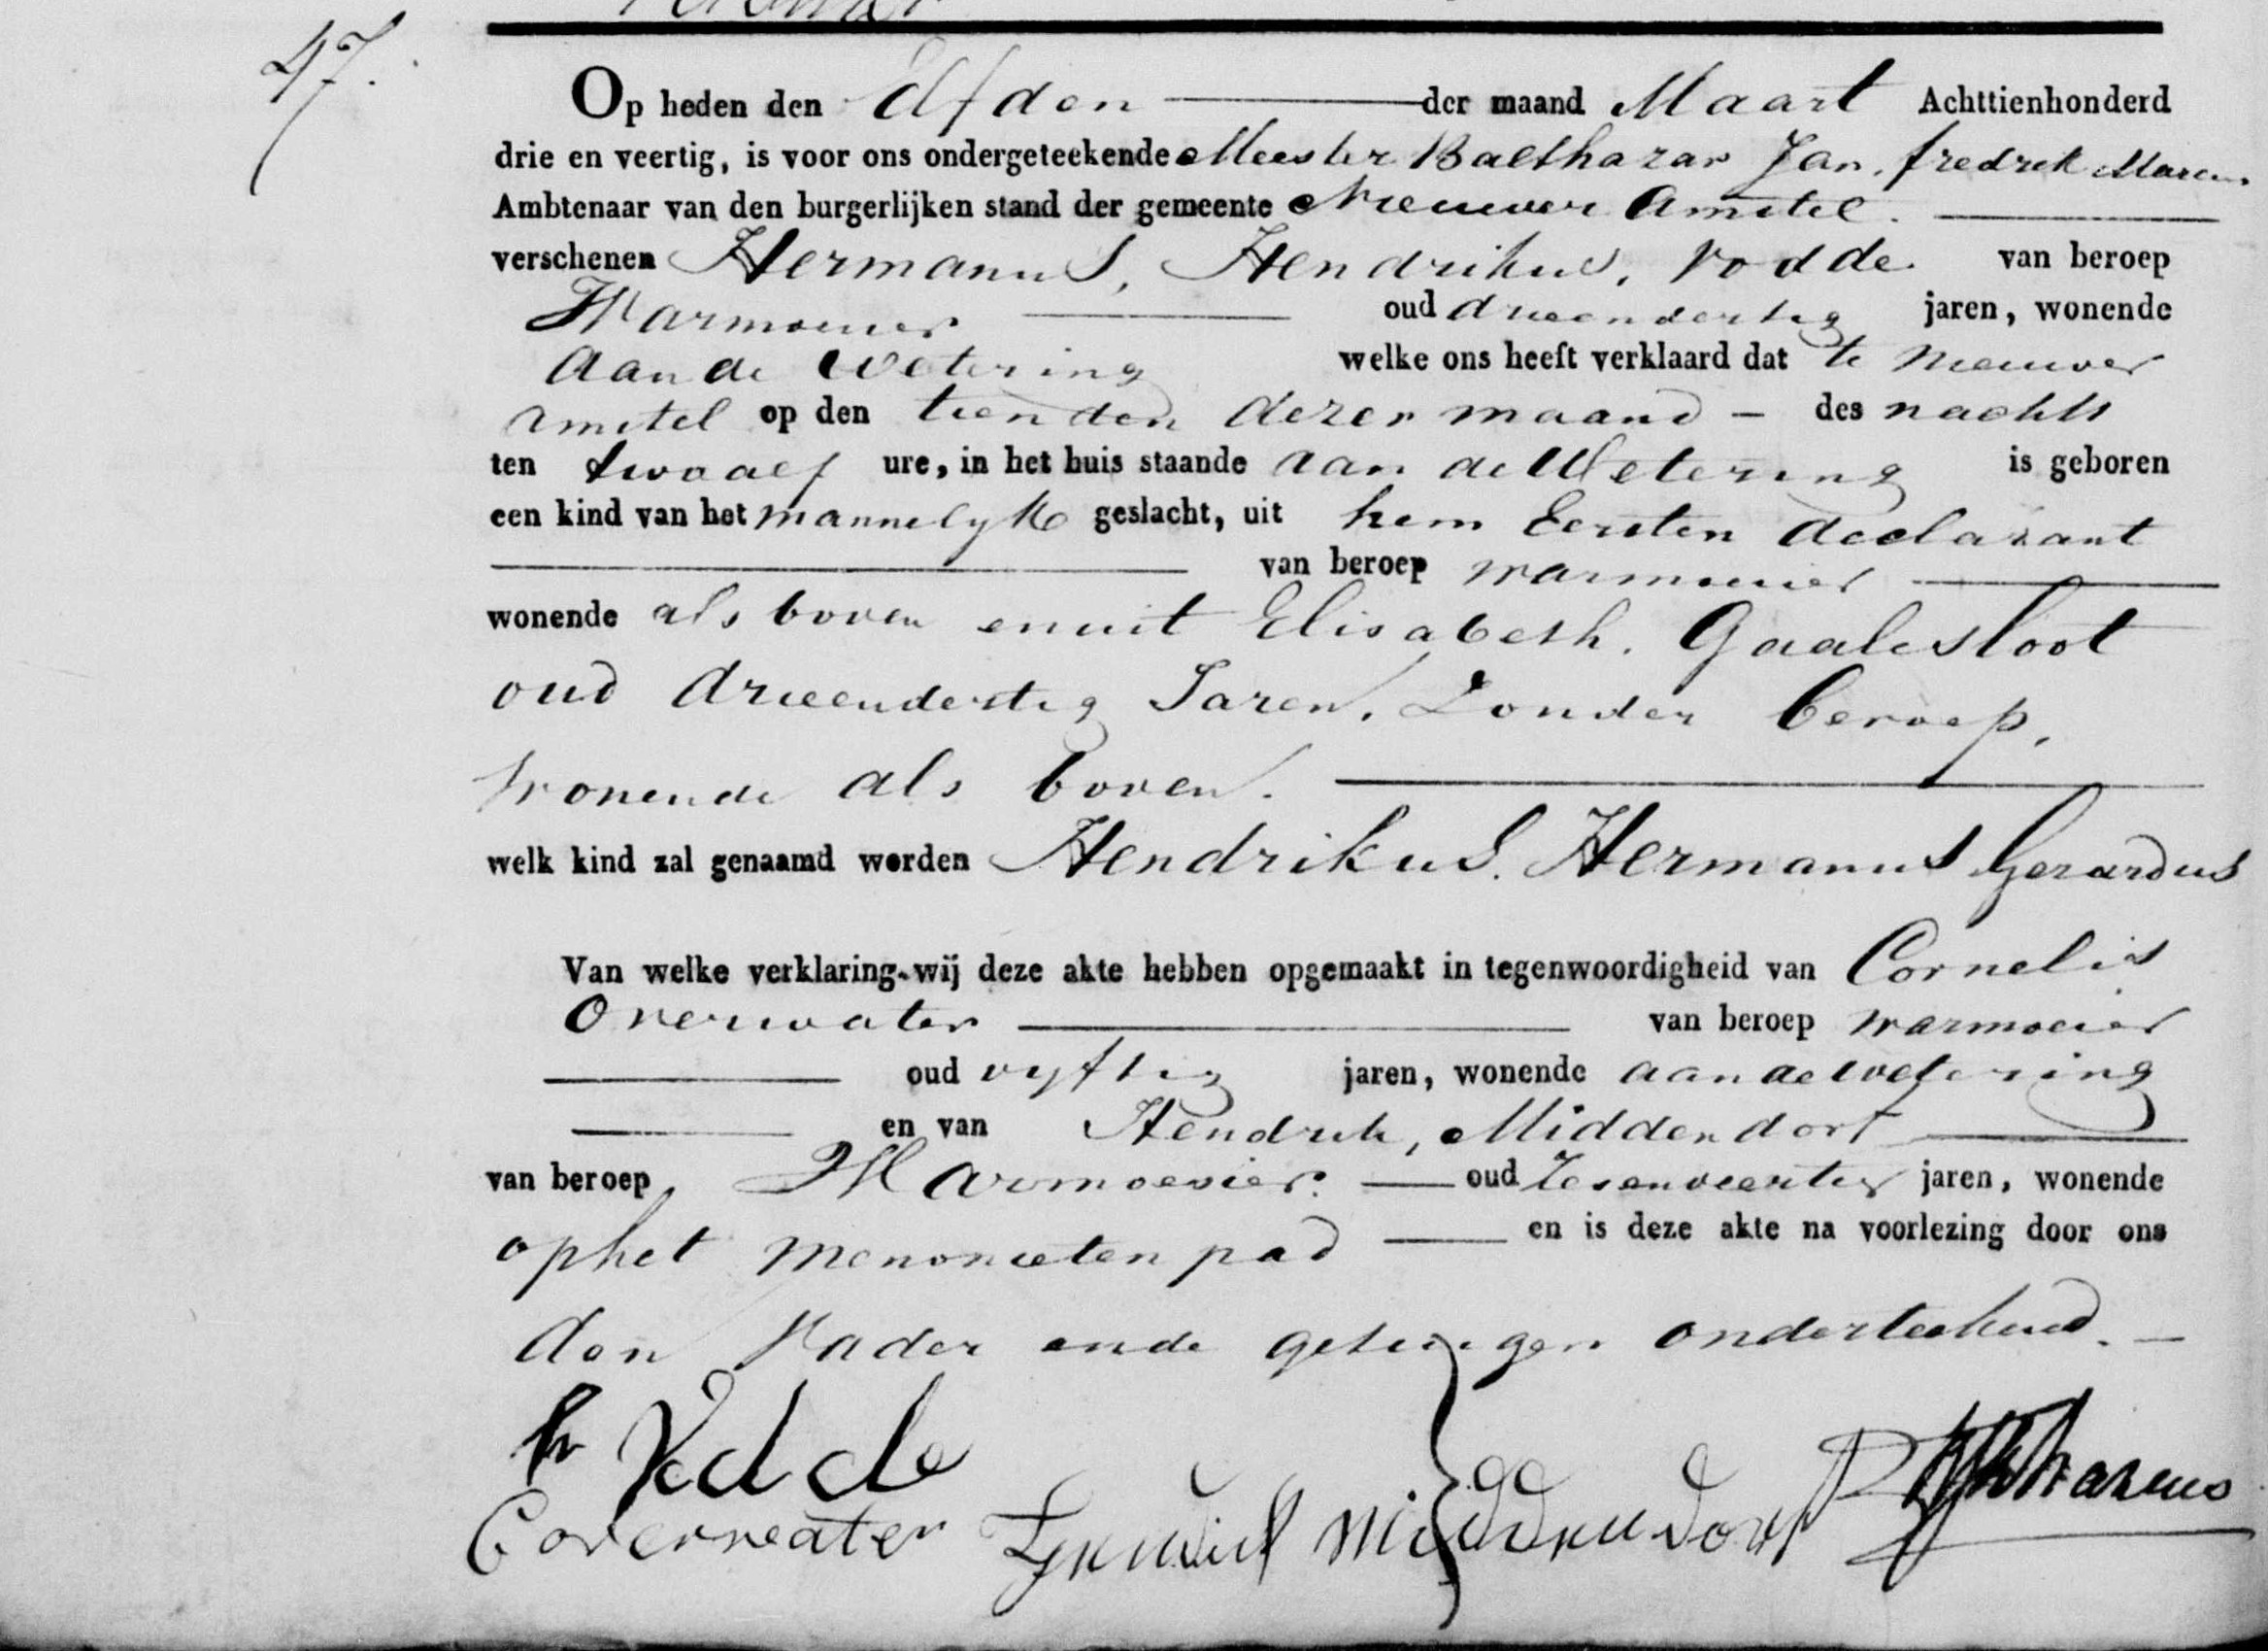 47.
Op heden den Elfden der maand Maart Achttienhonderd
drie en veertig, is voor ons ondergeteekende Meester Balthazar Jan, fredrik Marcus
Ambtenaar van den burgerlijken stand der gemeente Nieuwer Amstel.
verschenen Hermanus, Hendrikus, Vodde van beroep
Warmoesier oud drieendertig jaren, wonende
aan de Wetering welke ons heeft verklaard dat te Nieuwer
Amstel op den tienden dezer maand – des nachts
ten twaalf ure, in het huis staande aan de Wetering is geboren
een kind van het mannelyk geslacht, uit hem Eersten declarant
van beroep warmoesier
wonende als boven en uit Elisabeth. Gaalesloot
oud drieendertig Jaren, Zonder beroep,
wonende als boven.
welk kind zal genaamd worden Hendrikus. Hermanus Gerardus
Van welke verklaring wij deze akte hebben opgemaakt in tegenwoordigheid van Cornelis
Overwater van beroep warmoesier
oud vyftig jaren, wonende aan de wetering
en van Hendrik, Middendorf
van beroep Warmoesier. oud Zesenveertig jaren, wonende
op het Menonieten pad en is deze akte na voorlezing door ons
den Vader en de getuigen onderteekend. –
h Vodde
C overwater Hendrik Middendorf Marcus